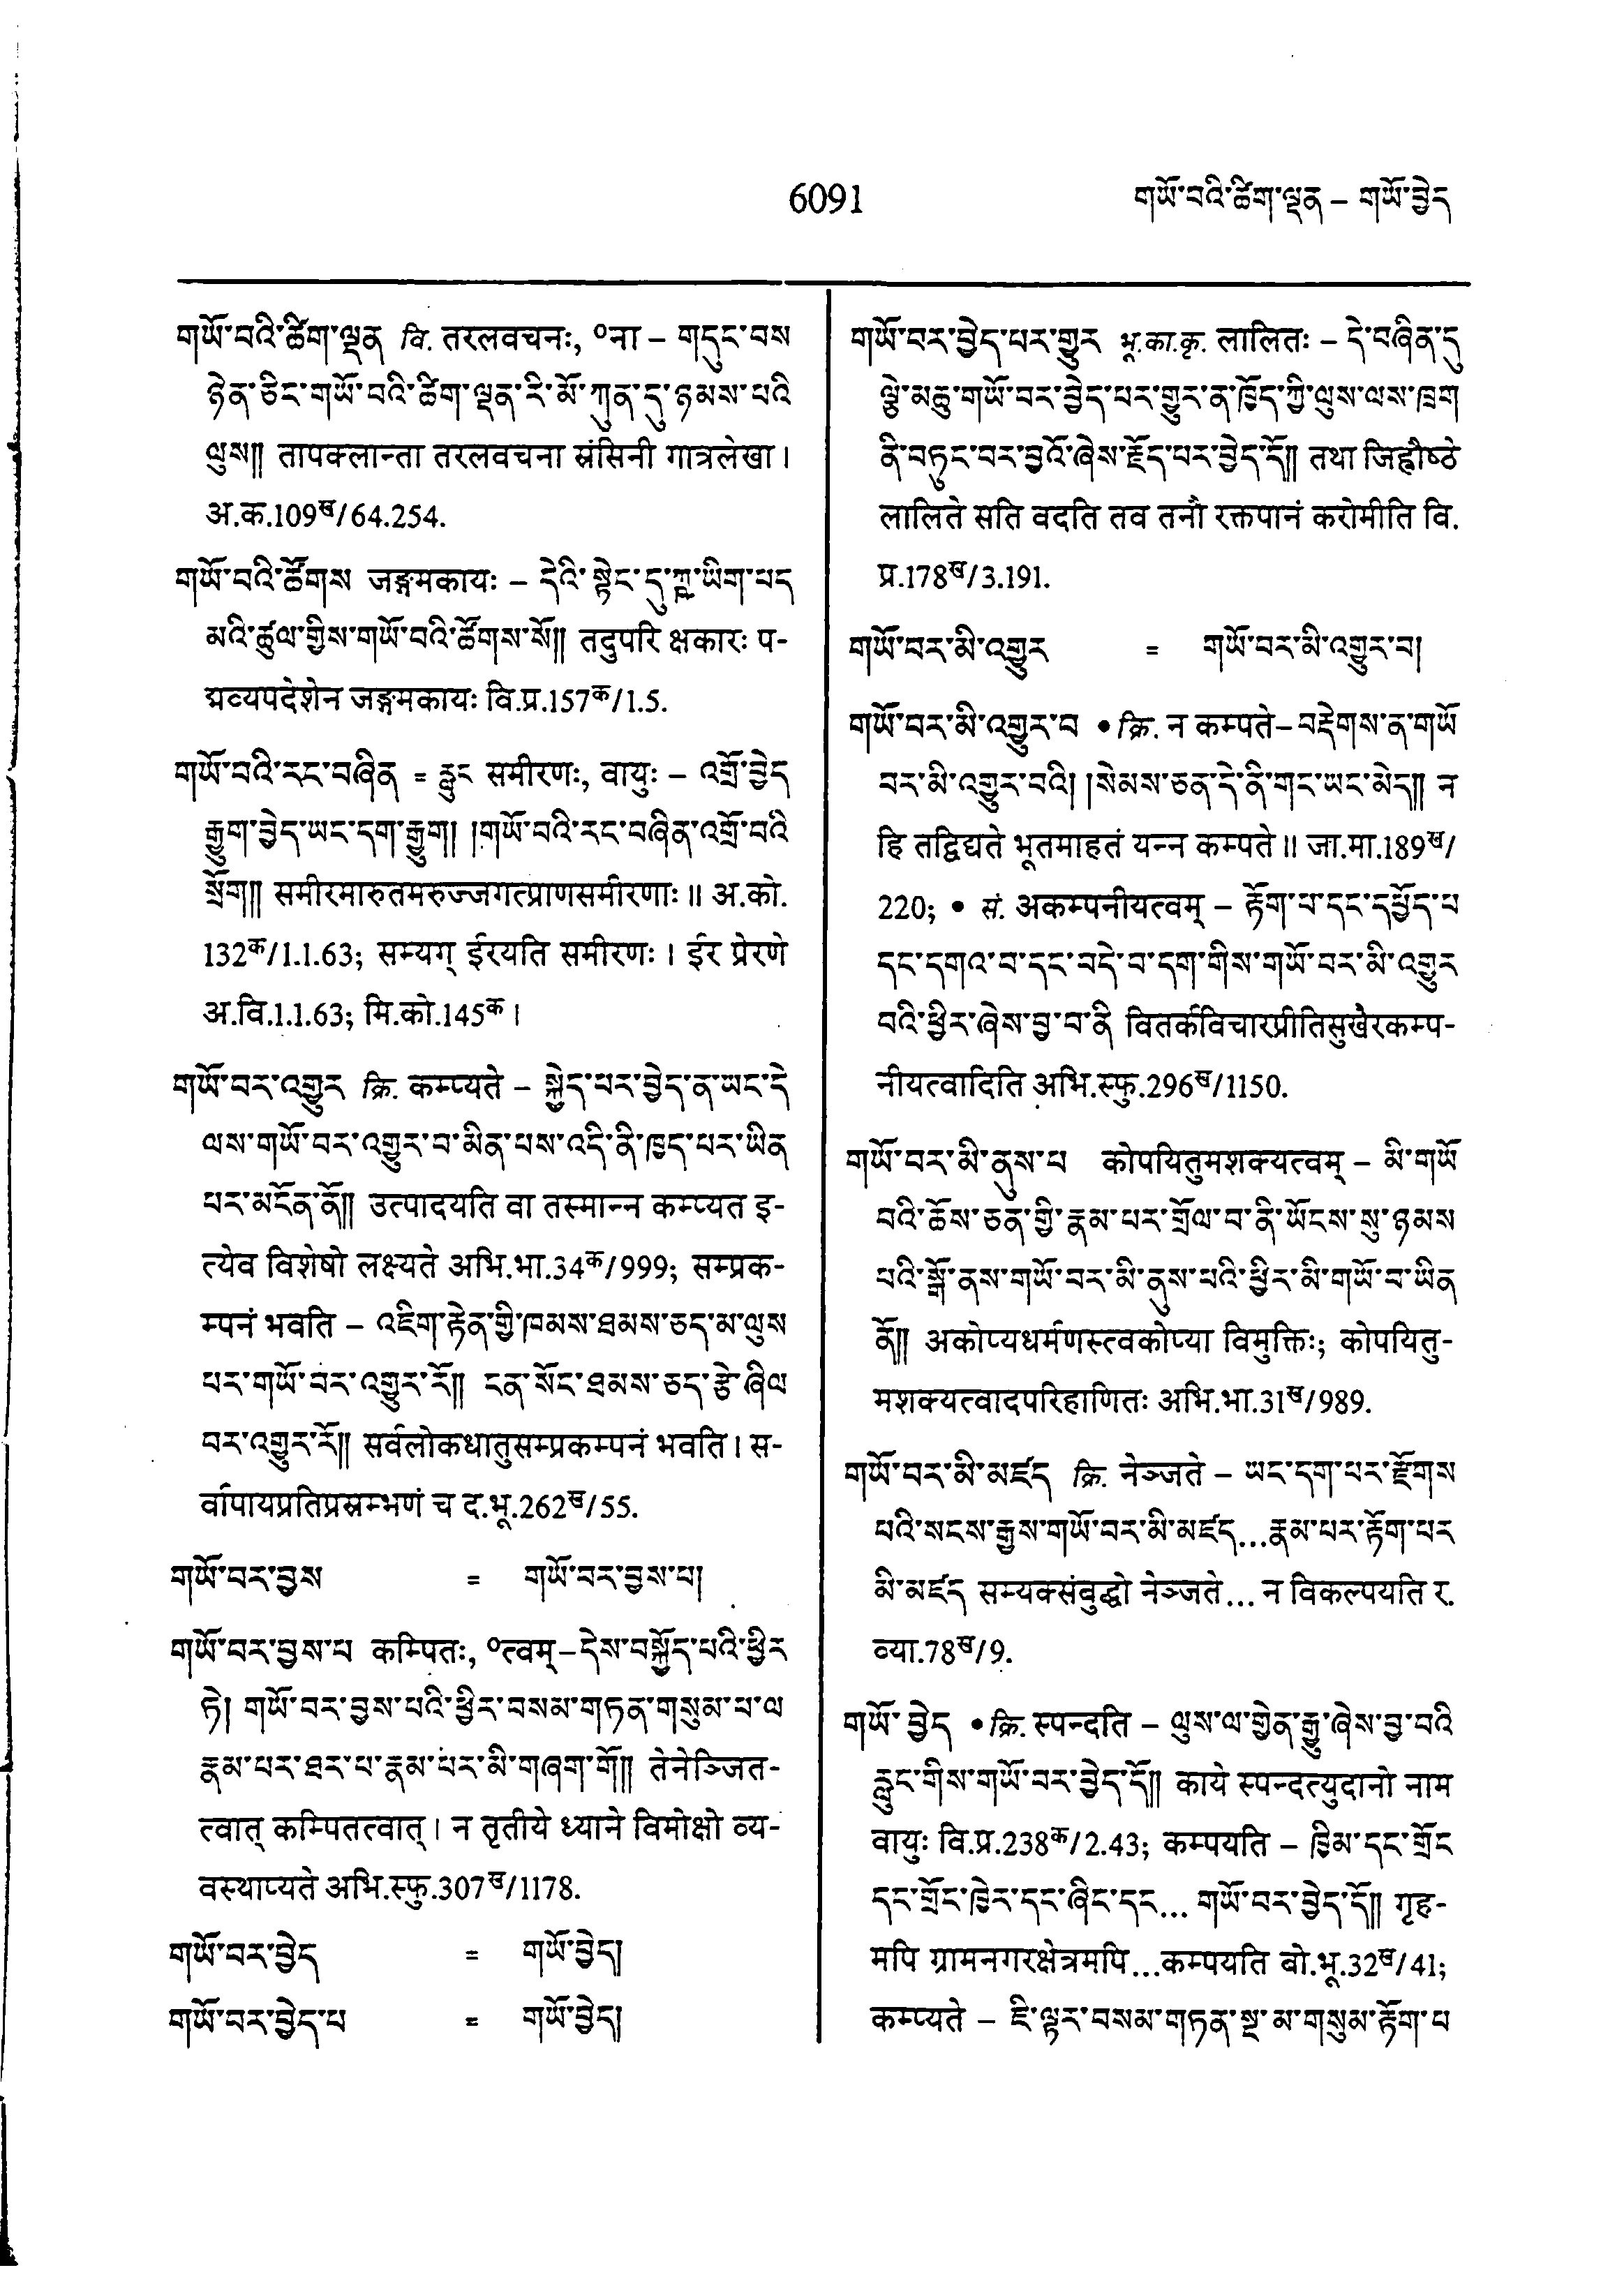 6091
གཡོ་བའི་ཚིག་ལྡན – གཡོ་བྱེད
གཡོ་བའི་ཚིག་ལྡན वि. तरलवचनः, ०ना – གདུང་བས
ཉེན་ཅིང་གཡོ་བའི་ཚིག་ལྡན་རི་མོ་ཀུན་དུ་ཉམས་པའི
ལུས།། तापक्लान्ता तरलवचना स्रंसिनी गात्रलेखा।
अ.क.109ख/64.254.
གཡོ་བའི་ཚོགས जङ्गमकायः – དེའི་སྟེང་དུ་ཀྵ་ཡིག་པད
མའི་ཚུལ་གྱིས་གཡོ་བའི་ཚོགས་སོ།། तदुपरि क्षकारः प-
द्मव्यपदेशेन जङ्गमकायः वि.प्र.157क/1.5.
གཡོ་བའི་རང་བཞིན = རླུང समीरणः, वायुः – འགྲོ་བྱེད
རྒྱུག་བྱེད་ཡང་དག་རྒྱུག། །གཡོ་བའི་རང་བཞིན་འགྲོ་བའི
སྲོག།། समीरमारुतमरुज्जगत्प्राणसमीरणाः॥ अ.को.
132क/1.1.63; सम्यग् ईरयति समीरणः। ईर प्रेरणे
अ.वि.1.1.63; मि.को.145क।
གཡོ་བར་འགྱུར क्रि. कम्प्यते – སྐྱེད་པར་བྱེད་ན་ཡང་དེ
ལས་གཡོ་བར་འགྱུར་བ་མིན་པས་འདི་ནི་ཁྱད་པར་ཡིན
པར་མངོན་ནོ།། उत्पादयति वा तस्मान्न कम्प्यत इ-
त्येव विशेषो लक्ष्यते अभि.भा.34क/999; सम्प्रक-
म्पनं भवति – འཇིག་རྟེན་གྱི་ཁམས་ཐམས་ཅད་མ་ལུས
པར་གཡོ་བར་འགྱུར་རོ།། ངན་སོང་ཐམས་ཅད་རྩེ་ཞིལ
བར་འགྱུར་རོ།། सर्वलोकधातुसम्प्रकम्पनं भवति। स-
र्वापायप्रतिप्रस्रम्भणं च द.भू.262ख/55.
གཡོ་བར་བྱས = གཡོ་བར་བྱས་པ།
གཡོ་བར་བྱས་པ कम्पितः, ०त्वम् – དེས་བསྐྱོད་པའི་ཕྱིར
ཏེ། གཡོ་བར་བྱས་པའི་ཕྱིར་བསམ་གཏན་གསུམ་པ་ལ
རྣམ་པར་ཐར་པ་རྣམ་པར་མི་གཞག་གོ།། तेनेञ्जित-
त्वात् कम्पितत्वात्। न तृतीये ध्याने विमोक्षो व्य-
वस्थाप्यते अभि.स्फु.307ख/1178.
གཡོ་བར་བྱེད = གཡོ་བྱེད།
གཡོ་བར་བྱེད་པ = གཡོ་བྱེད།
གཡོ་བར་བྱེད་པར་གྱུར भू.का.कृ. लालितः – དེ་བཞིན་དུ
ལྕེ་མཆུ་གཡོ་བར་བྱེད་པར་གྱུར་ན་ཁྱོད་ཀྱི་ལུས་ལས་ཁྲག
ནི་བཏུང་བར་བྱའོ་ཞེས་རྗོད་པར་བྱེད་དོ།། तथा जिह्वौष्ठे
लालिते सति वदति तव तनौ रक्तपानं करोमीति वि.
प्र.178ख/3.191.
གཡོ་བར་མི་འགྱུར = གཡོ་བར་མི་འགྱུར་བ།
གཡོ་བར་མི་འགྱུར་བ • क्रि. न कम्पते – བརྡེགས་ན་གཡོ
བར་མི་འགྱུར་བའི། །སེམས་ཅན་དེ་ནི་གང་ཡང་མེད།། न
हि तद्विद्यते भूतमाहतं यन्न कम्पते॥ जा.मा.189ख/
220; • सं. अकम्पनीयत्वम् – རྟོག་པ་དང་དཔྱོད་པ
དང་དགའ་བ་དང་བདེ་བ་དག་གིས་གཡོ་བར་མི་འགྱུར
བའི་ཕྱིར་ཞེས་བྱ་བ་ནི वितर्कविचारप्रीतिसुखैरकम्प-
नीयत्वादिति अभि.स्फु.296ख/1150.
གཡོ་བར་མི་ནུས་པ कोपयितुमशक्यत्वम् – མི་གཡོ
བའི་ཆོས་ཅན་གྱི་རྣམ་པར་གྲོལ་བ་ནི་ཡོངས་སུ་ཉམས
པའི་སྒོ་ནས་གཡོ་བར་མི་ནུས་པའི་ཕྱིར་མི་གཡོ་བ་ཡིན
ནོ།། अकोप्यधर्मणस्त्वकोप्या विमुक्तिः; कोपयितु-
मशक्यत्वादपरिहाणितः अभि.भा.31ख/989.
གཡོ་བར་མི་མཛད क्रि. नेञ्जते – ཡང་དག་པར་རྫོགས
པའི་སངས་རྒྱས་གཡོ་བར་མི་མཛད...རྣམ་པར་རྟོག་པར
མི་མཛད सम्यक्संबुद्धो नेञ्जते... न विकल्पयति र.
व्या.78ख/9.
གཡོ་བྱེད • क्रि. स्पन्दति – ལུས་ལ་གྱེན་རྒྱུ་ཞེས་བྱ་བའི
རླུང་གིས་གཡོ་བར་བྱེད་དོ།། काये स्पन्दत्युदानो नाम
वायुः वि.प्र.238क/2.43; कम्पयति – ཁྱིམ་དང་གྲོང
དང་གྲོང་ཁྱེར་དང་ཞིང་དང... གཡོ་བར་བྱེད་དོ།། गृह-
मपि ग्रामनगरक्षेत्रमपि...कम्पयति बो.भू.32ख/41;
कम्प्यते – ཇི་ལྟར་བསམ་གཏན་སྔ་མ་གསུམ་རྟོག་པ